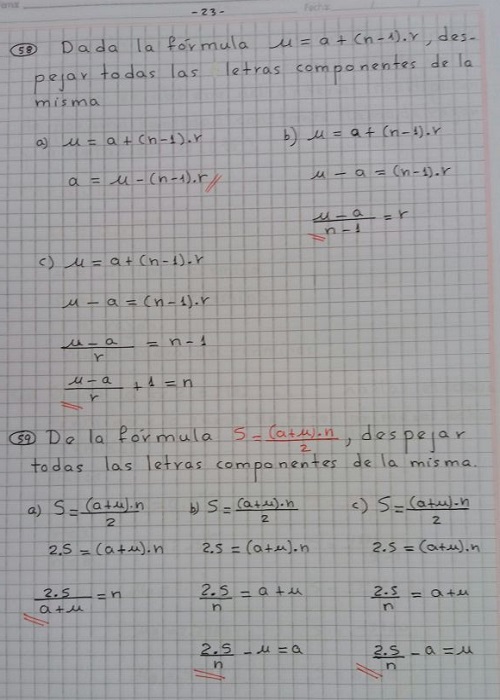 -23-
58 Dada la fórmula μ = a + (n-1).r, des-
pejar todas las letras componentes de la
misma
a) μ = a + (n-1).r
a = μ - (n-1).r
b) μ = a + (n-1).r
μ - a = (n-1).r
μ - a / n - 1 = r
c) μ = a + (n-1).r
μ - a = (n-1).r
μ - a / r = n - 1
μ - a / r + 1 = n
59 De la fórmula S = (a+μ).n / 2, despejar
todas las letras componentes de la misma.
a) S = (a+μ).n / 2
2.S = (a+μ).n
2.S / a+μ = n
b) S = (a+μ).n / 2
2.S = (a+μ).n
2.S / n = a+μ
2.S / n - μ = a
c) S = (a+μ).n / 2
2.S = (a+μ).n
2.S / n = a+μ
2.S / n - a = μ